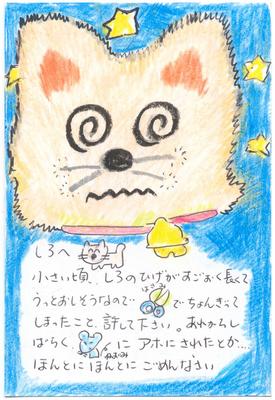 しろへ
小さい頃、しろのひげがすごぉく長くて
うっとおしそうなので はさみ でちょんぎって
しまったこと、許して下さい。あれからし
ばらく、ねずみ にアホにされたとか…
ほんとにほんとにごめんなさい